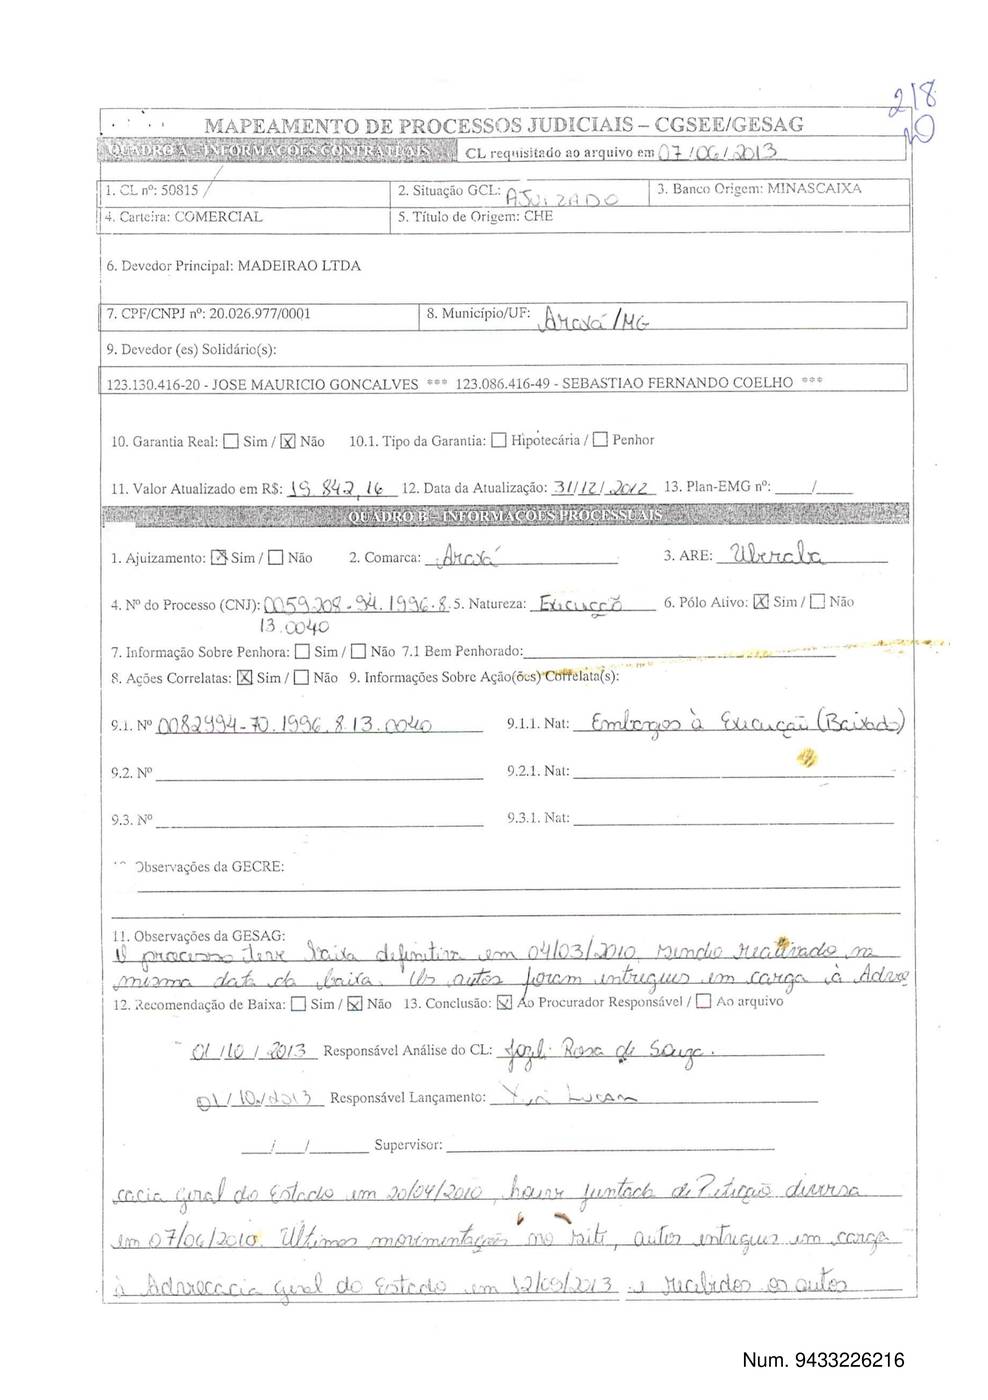 218
MAPEAMENTO DE PROCESSOS JUDICIAIS – CGSEE/GESAG
QUADRO A – INFORMAÇÕES CONTRATUAIS CL requisitado ao arquivo em 07/06/2013
1. CL nº: 50815 / 2. Situação GCL: AJUIZADO 3. Banco Origem: MINASCAIXA
4. Carteira: COMERCIAL 5. Título de Origem: CHE
6. Devedor Principal: MADEIRAO LTDA
7. CPF/CNPJ nº: 20.026.977/0001 8. Município/UF: Araxá/MG
9. Devedor (es) Solidário(s):
123.130.416-20 - JOSE MAURICIO GONCALVES *** 123.086.416-49 - SEBASTIAO FERNANDO COELHO ***
10. Garantia Real: ☐ Sim / ☒ Não 10.1. Tipo da Garantia: ☐ Hipotecária / ☐ Penhor
11. Valor Atualizado em R$: 19.842,16 12. Data da Atualização: 31/12/2012 13. Plan-EMG nº: ____/____
QUADRO B – INFORMAÇÕES PROCESSUAIS
1. Ajuizamento: ☒ Sim / ☐ Não 2. Comarca: Araxá 3. ARE: Uberaba
4. Nº do Processo (CNJ): 0059208-94.1996.8. 5. Natureza: Execução 6. Pólo Ativo: ☒ Sim / ☐ Não
13.0040
7. Informação Sobre Penhora: ☐ Sim / ☐ Não 7.1 Bem Penhorado:
8. Ações Correlatas: ☒ Sim / ☐ Não 9. Informações Sobre Ação(ões) Correlata(s):
9.1. Nº 0082994-70.1996.8.13.0040 9.1.1. Nat: Embargos à Execução (Baixado)
9.2. Nº 9.2.1. Nat:
9.3. Nº 9.3.1. Nat:
Observações da GECRE:
11. Observações da GESAG:
O processo teve baixa definitiva em 04/03/2010, sendo reativado na
mesma data da baixa. Os autos foram entregues em carga à Advo
12. Recomendação de Baixa: ☐ Sim / ☒ Não 13. Conclusão: ☒ Ao Procurador Responsável / ☐ Ao arquivo
01/10/2013 Responsável Análise do CL: Rosa de Souza.
01/10/2013 Responsável Lançamento: Yuri
__/__/____ Supervisor:
cacia Geral do Estado em 20/04/2010, houve juntada de Petição diversa
em 07/06/2010. Últimas movimentações no site, autos entregues em carga
à Advocacia Geral do Estado em 12/09/2013 e recebidos os autos
Num. 9433226216